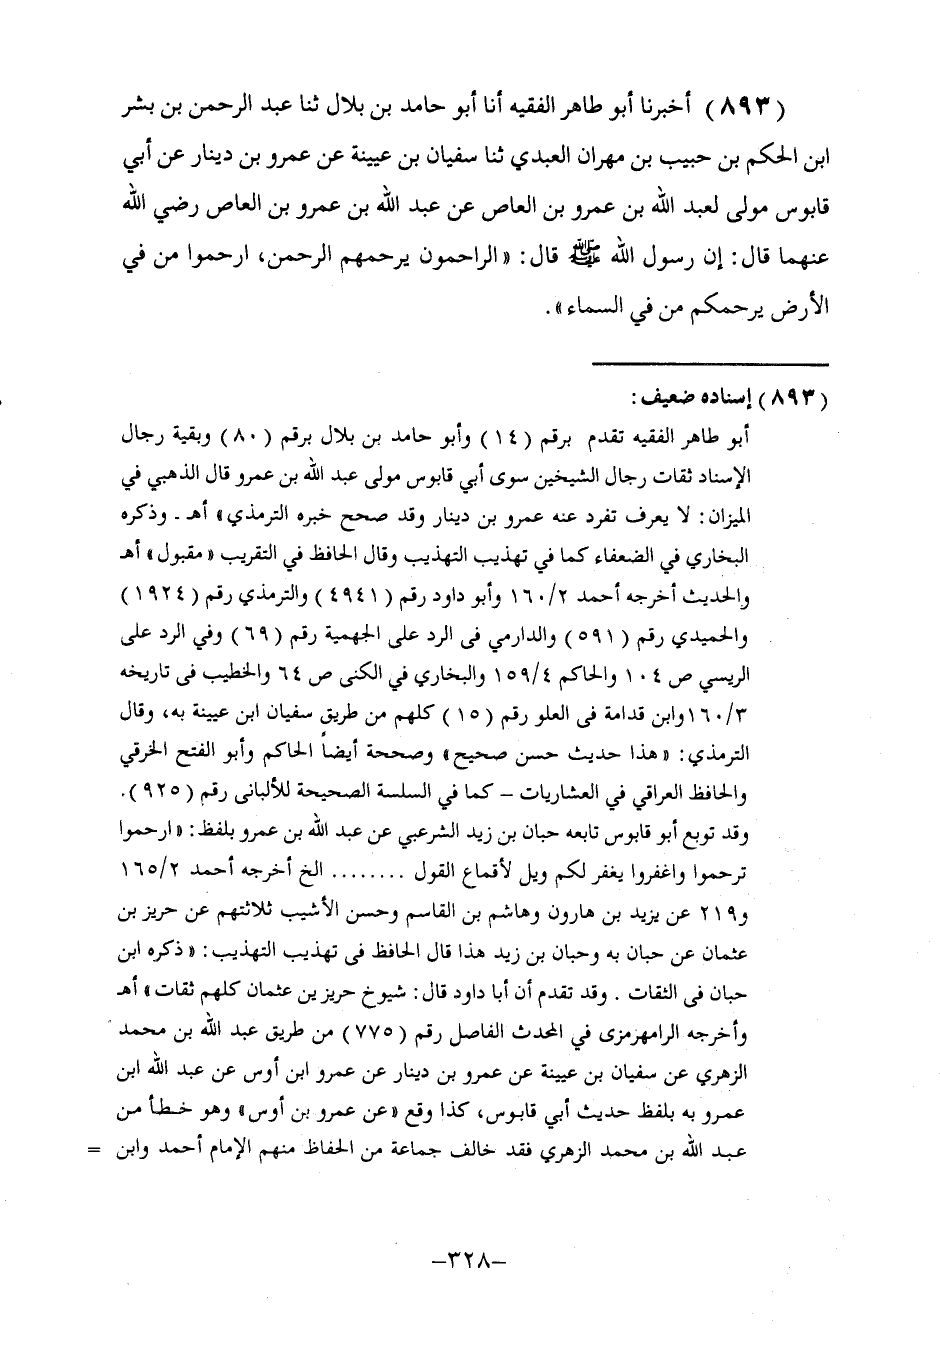 (٨٩٣) أخبرنا أبو طاهر الفقيه أنا أبو حامد بن بلال ثنا عبد الرحمن بن بشر
ابن الحكم بن حبيب بن مهران العبدي ثنا سفيان بن عيينة عن عمرو بن دينار عن أبي
قابوس مولى لعبد الله بن عمرو بن العاص عن عبد الله بن عمرو بن العاص رضي الله
عنهما قال: إن رسول الله ﷺ قال: «الراحمون يرحمهم الرحمن، ارحموا من في
الأرض يرحمكم من في السماء».
(٨٩٣) إسناده ضعيف:
أبو طاهر الفقيه تقدم برقم (١٤) وأبو حامد بن بلال برقم (٨٠) وبقية رجال
الإسناد ثقات رجال الشيخين سوى أبي قابوس مولى عبد الله بن عمرو قال الذهبي في
الميزان: لا يعرف تفرد عنه عمرو بن دينار وقد صحح خبره الترمذي» أهـ. وذكره
البخاري في الضعفاء كما في تهذيب التهذيب وقال الحافظ في التقريب «مقبول» أهـ
والحديث أخرجه أحمد ١٦٠/٢ وأبو داود رقم (٤٩٤١) والترمذي رقم (١٩٢٤)
والحميدي رقم (٥٩١) والدارمي فى الرد على الجهمية رقم (٦٩) وفي الرد على
الريسي ص ١٠٤ والحاكم ١٥٩/٤ والبخاري في الكنى ص ٦٤ والخطيب فى تاريخه
١٦٠/٣وابن قدامة فى العلو رقم (١٥) كلهم من طريق سفيان ابن عيينة به، وقال
الترمذي: «هذا حديث حسن صحيح» وصححة أيضاً الحاكم وأبو الفتح الخرقي
والحافظ العراقي في العشاريات – كما في السلسة الصحيحة للألبانى رقم (٩٢٥).
وقد توبع أبو قابوس تابعه حبان بن زيد الشرعبي عن عبد الله بن عمرو بلفظ: «ارحموا
ترحموا واغفروا يغفر لكم ويل لأقماع القول ........ الخ أخرجه أحمد ١٦٥/٢
و٢١٩ عن يزيد بن هارون وهاشم بن القاسم وحسن الأشيب ثلاثتهم عن حريز بن
عثمان عن حبان به وحبان بن زيد هذا قال الحافظ فى تهذيب التهذيب: «ذكره ابن
حبان فى الثقات . وقد تقدم أن أبا داود قال: شيوخ حريز بن عثمان كلهم ثقات» أهـ
وأخرجه الرامهرمزى في المحدث الفاصل رقم (٧٧٥) من طريق عبد الله بن محمد
الزهري عن سفيان بن عيينة عن عمرو بن دينار عن عمرو ابن أوس عن عبد الله ابن
عمرو به بلفظ حديث أبي قابوس، كذا وقع «عن عمرو بن أوس» وهو خطأ من
عبد الله بن محمد الزهري فقد خالف جماعة من الحفاظ منهم الإمام أحمد وابن =
–٣٢٨–